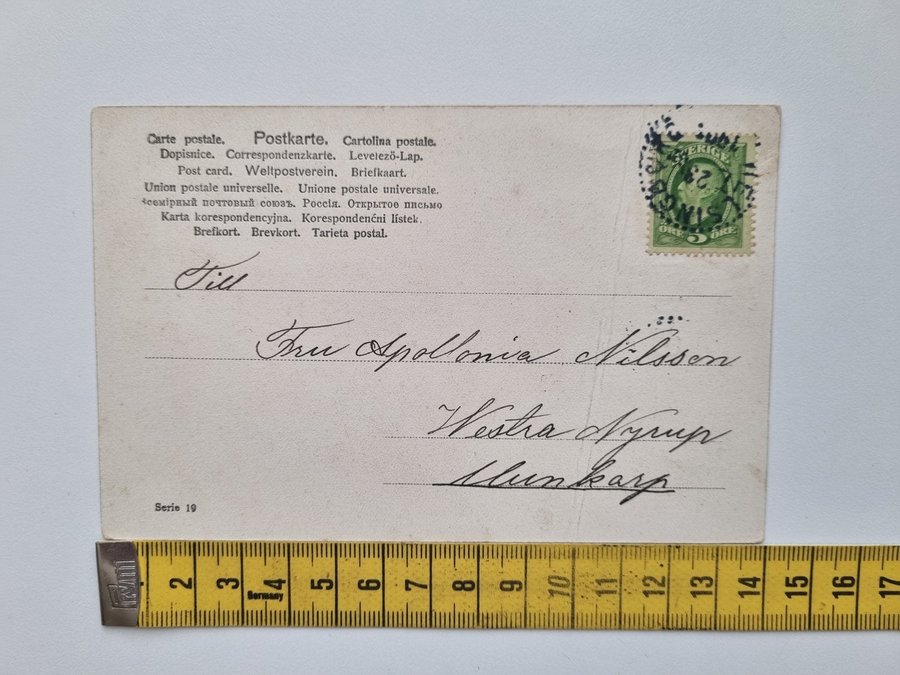 Carte postale. Postkarte. Cartolina postale.
Dopisnice. Correspondenzkarte. Levelező-Lap.
Post card. Weltpostverein. Briefkaart.
Union postale universelle. Unione postale universale.
Всемірный почтовый союзъ. Россія. Открытое письмо
Karta korespondencyjna. Korespondenčni lístek.
Brefkort. Brevkort. Tarieta postal.
SVERIGE
ÖRE 5 ÖRE
Till
Fru Apollonia Nilsson
Westra Nyrup
Munkarp
Serie 19
2 3 4 5 6 7 8 9 10 11 12 13 14 15 16 17
Germany